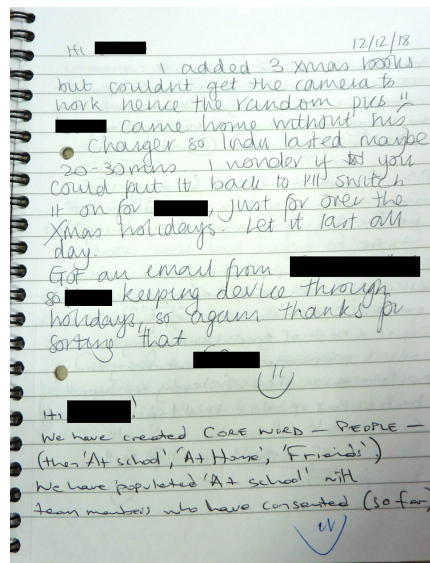 Hi 12/12/18
I added 3 Xmas books
but couldnt get the camera to
work hence the random pics !!
came home without his
Charger so Indu lasted maybe
20-30mins I wonder if you
could put it back to I'll switch
it on for , just for over the
Xmas holidays. Let it last all
day.
Got an email from
so keeping device through
holidays, so again thanks for
sorting that
Hi !
We have created CORE WORD – PEOPLE –
(then 'At school', 'At Home', 'Friends'.)
We have populated 'At school' with
team members who have consented (so far)